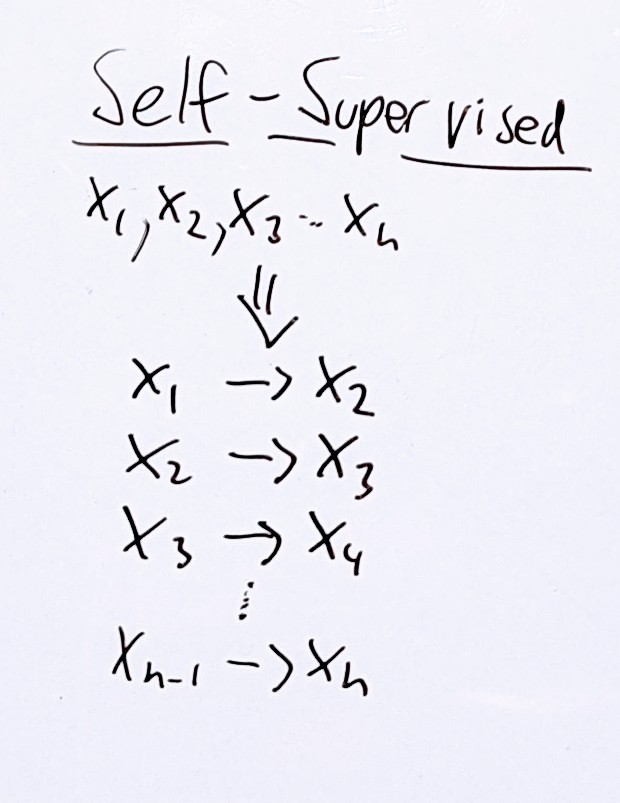 Self-Supervised
X₁, X₂, X₃ ... Xₙ
⇓
X₁ → X₂
X₂ → X₃
X₃ → X₄
⋮
Xₙ₋₁ → Xₙ